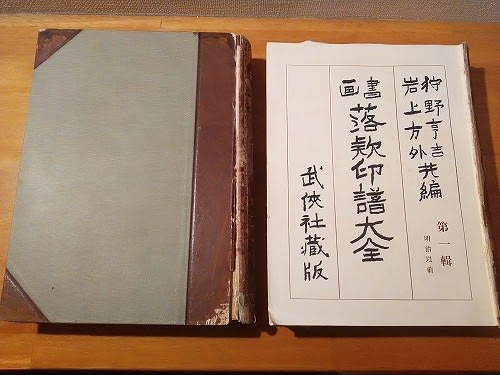 狩野亨吉
岩上方外共編
第一輯
明治以前
書画
落款印譜大全
武侠社蔵版